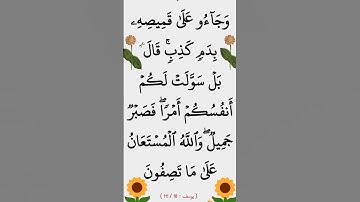 وَجَآءُو عَلَىٰ قَمِيصِهِۦ
بِدَمٖ كَذِبٖۚ قَالَ
بَلۡ سَوَّلَتۡ لَكُمۡ
أَنفُسُكُمۡ أَمۡرٗاۖ فَصَبۡرٞ
جَمِيلٞۖ وَٱللَّهُ ٱلۡمُسۡتَعَانُ
عَلَىٰ مَا تَصِفُونَ